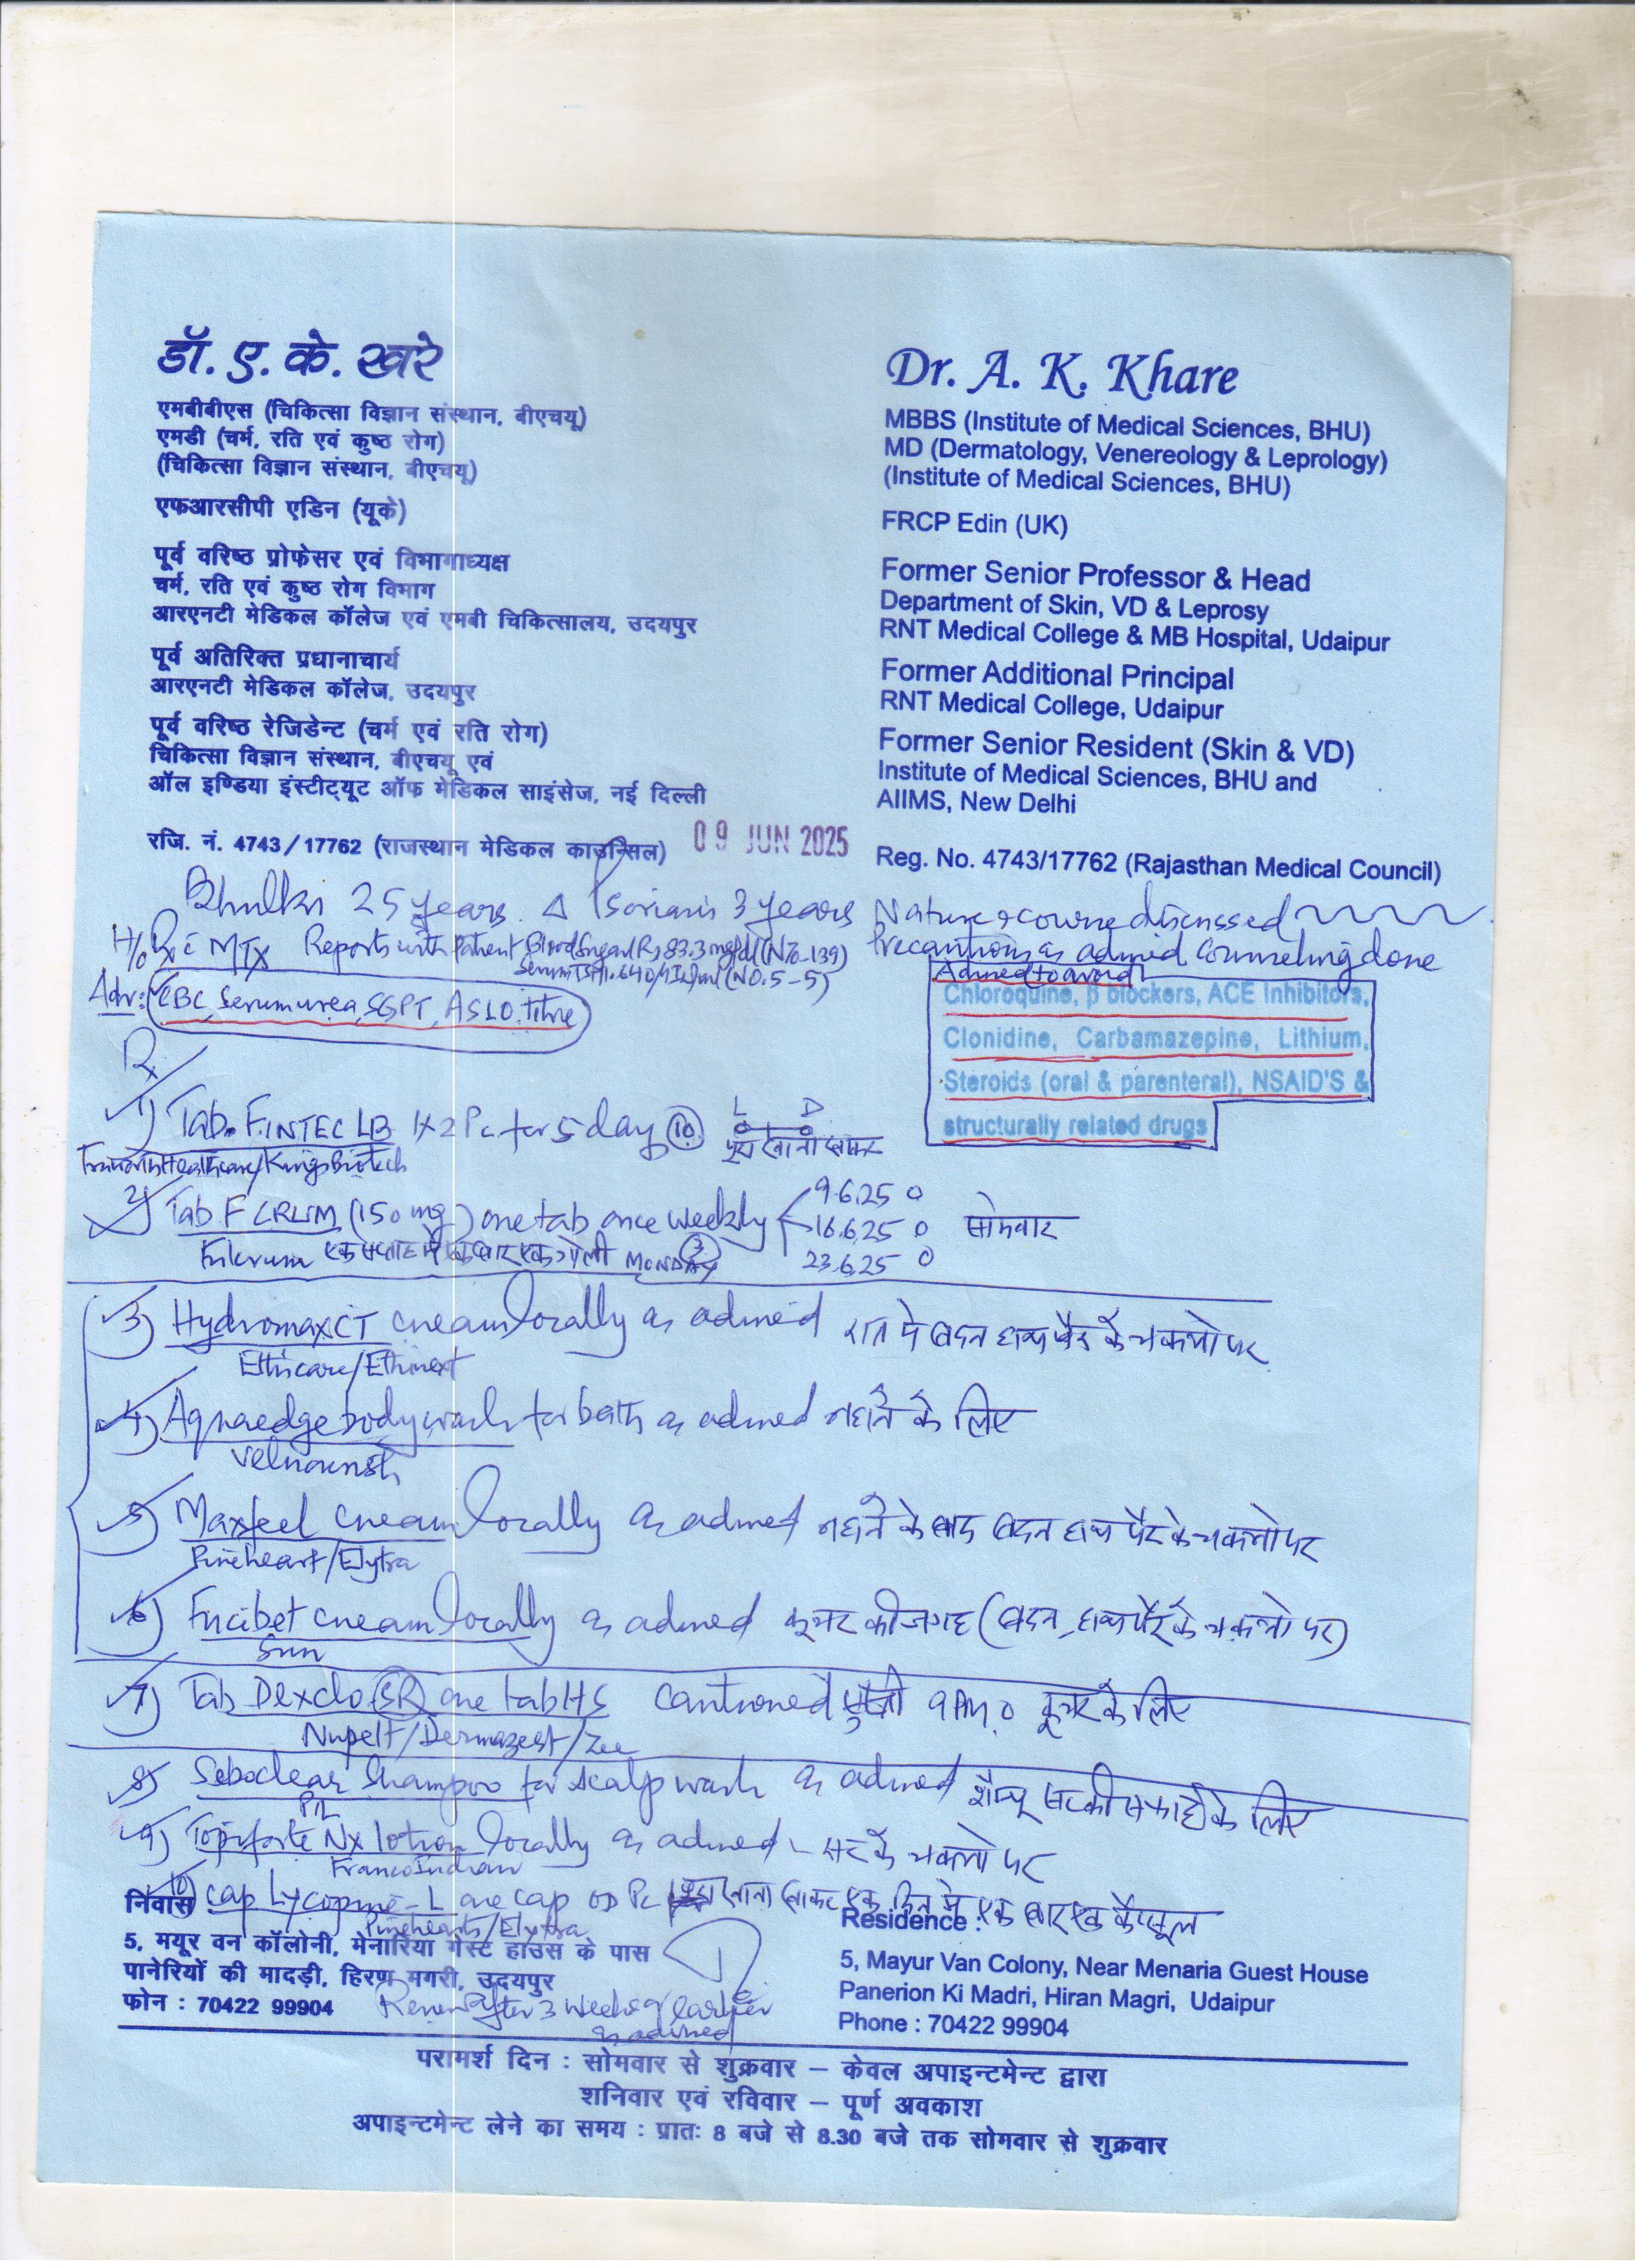 डॉ. ए. के. खरे
एमबीबीएस (चिकित्सा विज्ञान संस्थान, बीएचयू)
एमडी (चर्म, रति एवं कुष्ठ रोग)
(चिकित्सा विज्ञान संस्थान, बीएचयू)
एफआरसीपी एडिन (यूके)
पूर्व वरिष्ठ प्रोफेसर एवं विभागाध्यक्ष
चर्म, रति एवं कुष्ठ रोग विभाग
आरएनटी मेडिकल कॉलेज एवं एमबी चिकित्सालय, उदयपुर
पूर्व अतिरिक्त प्रधानाचार्य
आरएनटी मेडिकल कॉलेज, उदयपुर
पूर्व वरिष्ठ रेजिडेन्ट (चर्म एवं रति रोग)
चिकित्सा विज्ञान संस्थान, बीएचयू एवं
ऑल इण्डिया इंस्टीट्यूट ऑफ मेडिकल साइंसेज, नई दिल्ली
रजि. नं. 4743/17762 (राजस्थान मेडिकल काउन्सिल)
Dr. A. K. Khare
MBBS (Institute of Medical Sciences, BHU)
MD (Dermatology, Venereology & Leprology)
(Institute of Medical Sciences, BHU)
FRCP Edin (UK)
Former Senior Professor & Head
Department of Skin, VD & Leprosy
RNT Medical College & MB Hospital, Udaipur
Former Additional Principal
RNT Medical College, Udaipur
Former Senior Resident (Skin & VD)
Institute of Medical Sciences, BHU and
AIIMS, New Delhi
Reg. No. 4743/17762 (Rajasthan Medical Council)
09 JUN 2025
25 years Δ Psoriasis 3 years Nature & course discussed
H/o Rx c MTX Reports with patient Blood Sugar (R) 83.3 mg/dl (N70-139) Precautions as advised Counseling done
Serum TSH 1.640 (N0.5-5)
Adv: CBC, Serum urea, SGPT, ASLO titre
Advised to avoid
Chloroquine, β blockers, ACE Inhibitors,
Clonidine, Carbamazepine, Lithium,
Steroids (oral & parenteral), NSAID'S &
structurally related drugs
Rx
1) Tab. FINTEC LB 1x2 Pc for 5 day (10) L D
खाना खाकर
Healthcare/Kings Biotech
2) Tab FLRUM (150 mg) one tab once weekly 9.6.25 0
16.6.25 0 सोमवार
23.6.25 0
Fulcrum एक सप्ताह में एक बार एक गोली MONDAY (3)
3) Hydromax CT cream locally as advised रात में बदन हाथ पैर के चकत्तो पर
Ethicare/Ethinext
4) Aquaedge body wash for bath as advised नहाने के लिए
5) Maxfeel cream locally as advised नहाने के बाद बदन हाथ पैर के चकत्तो पर
Pineheart/Elytra
6) Fucibet cream locally as advised की जगह (बदन, हाथ पैर के चकत्तो पर)
Sun
7) Tab Dexclo (SR) one tab HS cautioned 9 PM 0 के लिए
8) Seboclear Shampoo for scalp wash as advised शैम्पू सर की सफाई के लिए
9) Topiforte Nx lotion locally as advised - सर के चकत्तो पर
Franco Indian
10) Cap Lycopine-L one cap OD Pc खाना खाकर एक दिन में एक बार एक कैप्सूल
Pineheart/Elytra
निवास
5, मयूर वन कॉलोनी, मेनारिया गेस्ट हाउस के पास
पानेरियों की मादड़ी, हिरण मगरी, उदयपुर
फोन : 70422 99904
Renew after 3 weeks / earlier
as advised
Residence :
5, Mayur Van Colony, Near Menaria Guest House
Panerion Ki Madri, Hiran Magri, Udaipur
Phone : 70422 99904
परामर्श दिन : सोमवार से शुक्रवार – केवल अपाइन्टमेन्ट द्वारा
शनिवार एवं रविवार – पूर्ण अवकाश
अपाइन्टमेन्ट लेने का समय : प्रातः 8 बजे से 8.30 बजे तक सोमवार से शुक्रवार